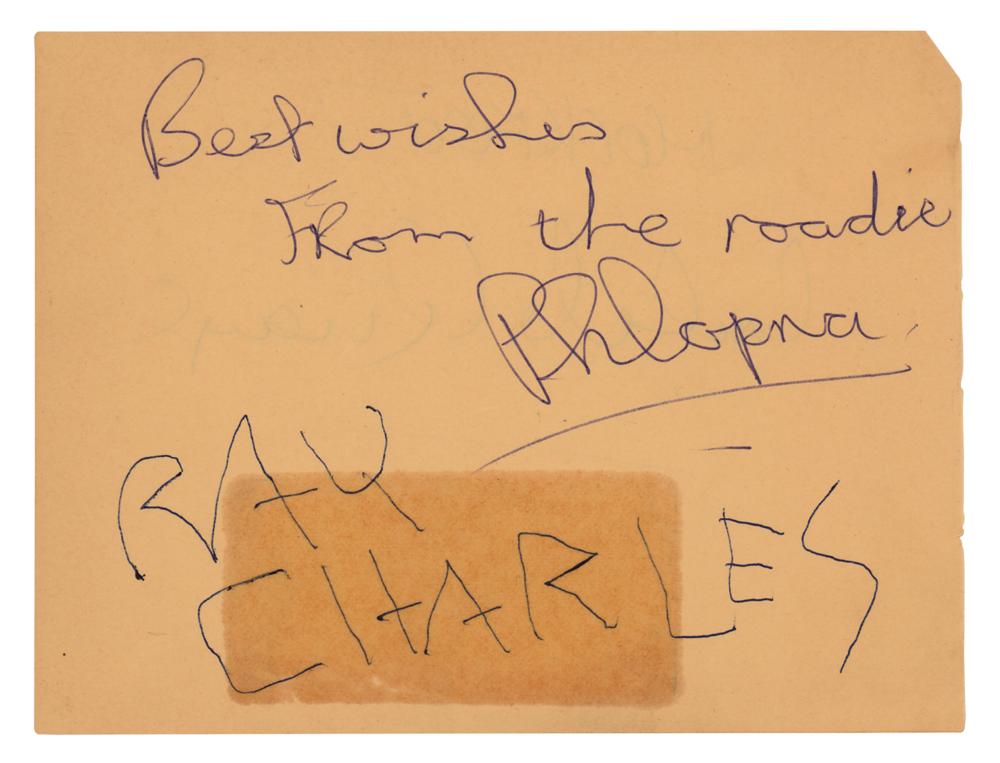 Best wishes
From the roadie
RAY
CHARLES